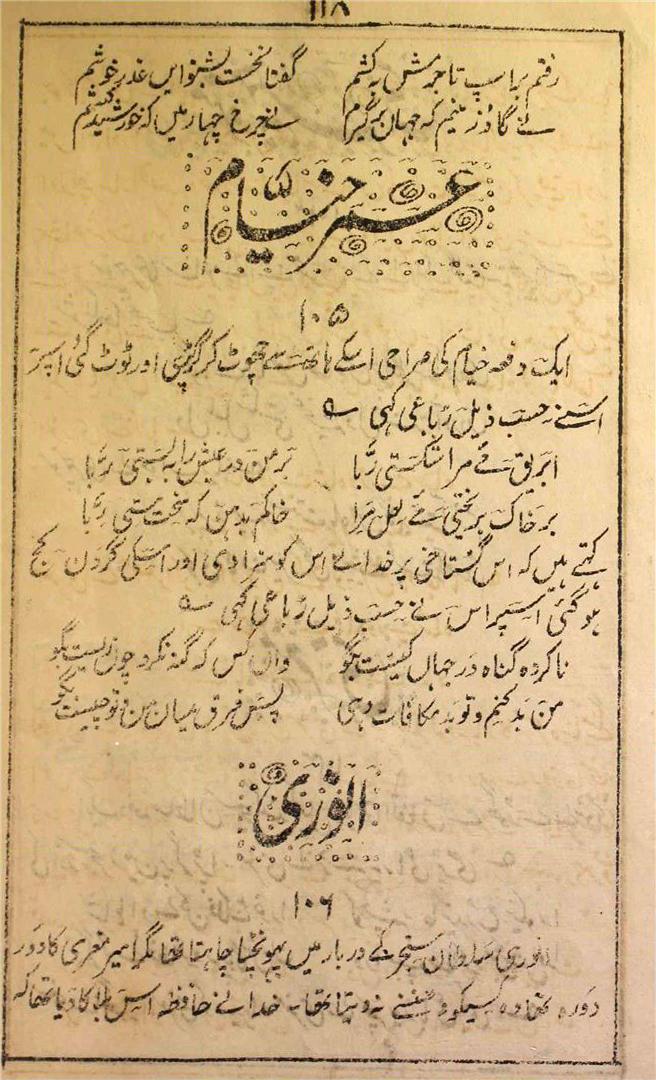 ۱۱۸
رفتم بر اسپ تا جرمش بکشم گفتا نخست بشنو ایں عذر خوشم
نے گاوِ زمینم کہ جہان برگیرم نے چرخ چہارمیں کہ خورشید کشم
عمر خیام
۱۰۵
ایک دفعہ خیام کی صراحی اسکے ہاتھ سے چھوٹ کر گر پڑی اور ٹوٹ گئی اسپر
اسنے حسب ذیل رباعی کہی ؎
ابریق مے مرا شکستی ربا بر من در عیش را بہ بستی ربا
بر خاک بریختی مے لعل مرا خاکم بدہن کہ سخت مستی ربا
کہتے ہیں کہ اس گستاخی پر خدا نے اس کو سزا دی اور اسکی گردن کج
ہو گئی اسپر اس نے حسب ذیل رباعی کہی ؎
ناکردہ گناہ در جہاں کیست بگو واں کس کہ گنہ نکرد چوں زیست بگو
من بد کنم و تو بد مکافات دہی پس فرق میان من و تو چیست بگو
انوری
۱۰۶
انوری سلطان سنجر کے دربار میں پہونچنا چاہتا تھا مگر امیر معزی کا دور
دورہ تھا وہ کسیکو گھسنے نہ دیتا تھا۔ خدا نے حافظہ اس بلا کا دیا تھا کہ